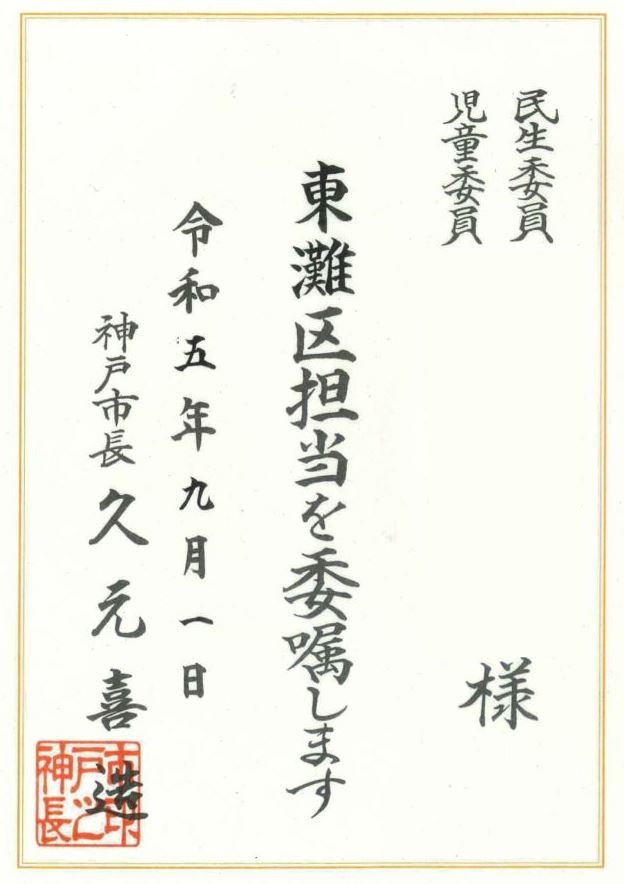 民生委員
児童委員
様
東灘区担当を委嘱します
令和五年九月一日
神戸市長 久元喜造
神戸市長之印